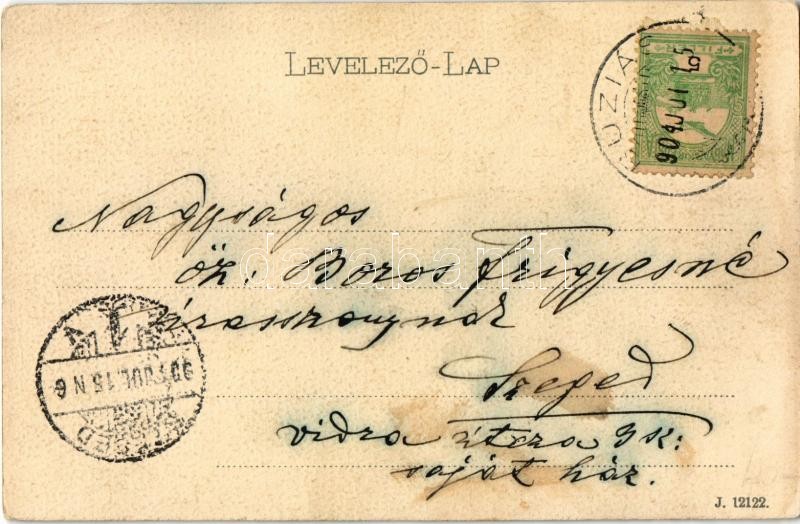 LEVELEZŐ-LAP
BUZIÁS
904 JUL 15
5
FILLÉR
Nagyságos
öz: Boros Frigyesné
úrasszonynak
Szeged
vidra útcza 3 sz:
saját ház.
SZEGED
904 JUL. 15 N 6
darabanth
J. 12122.